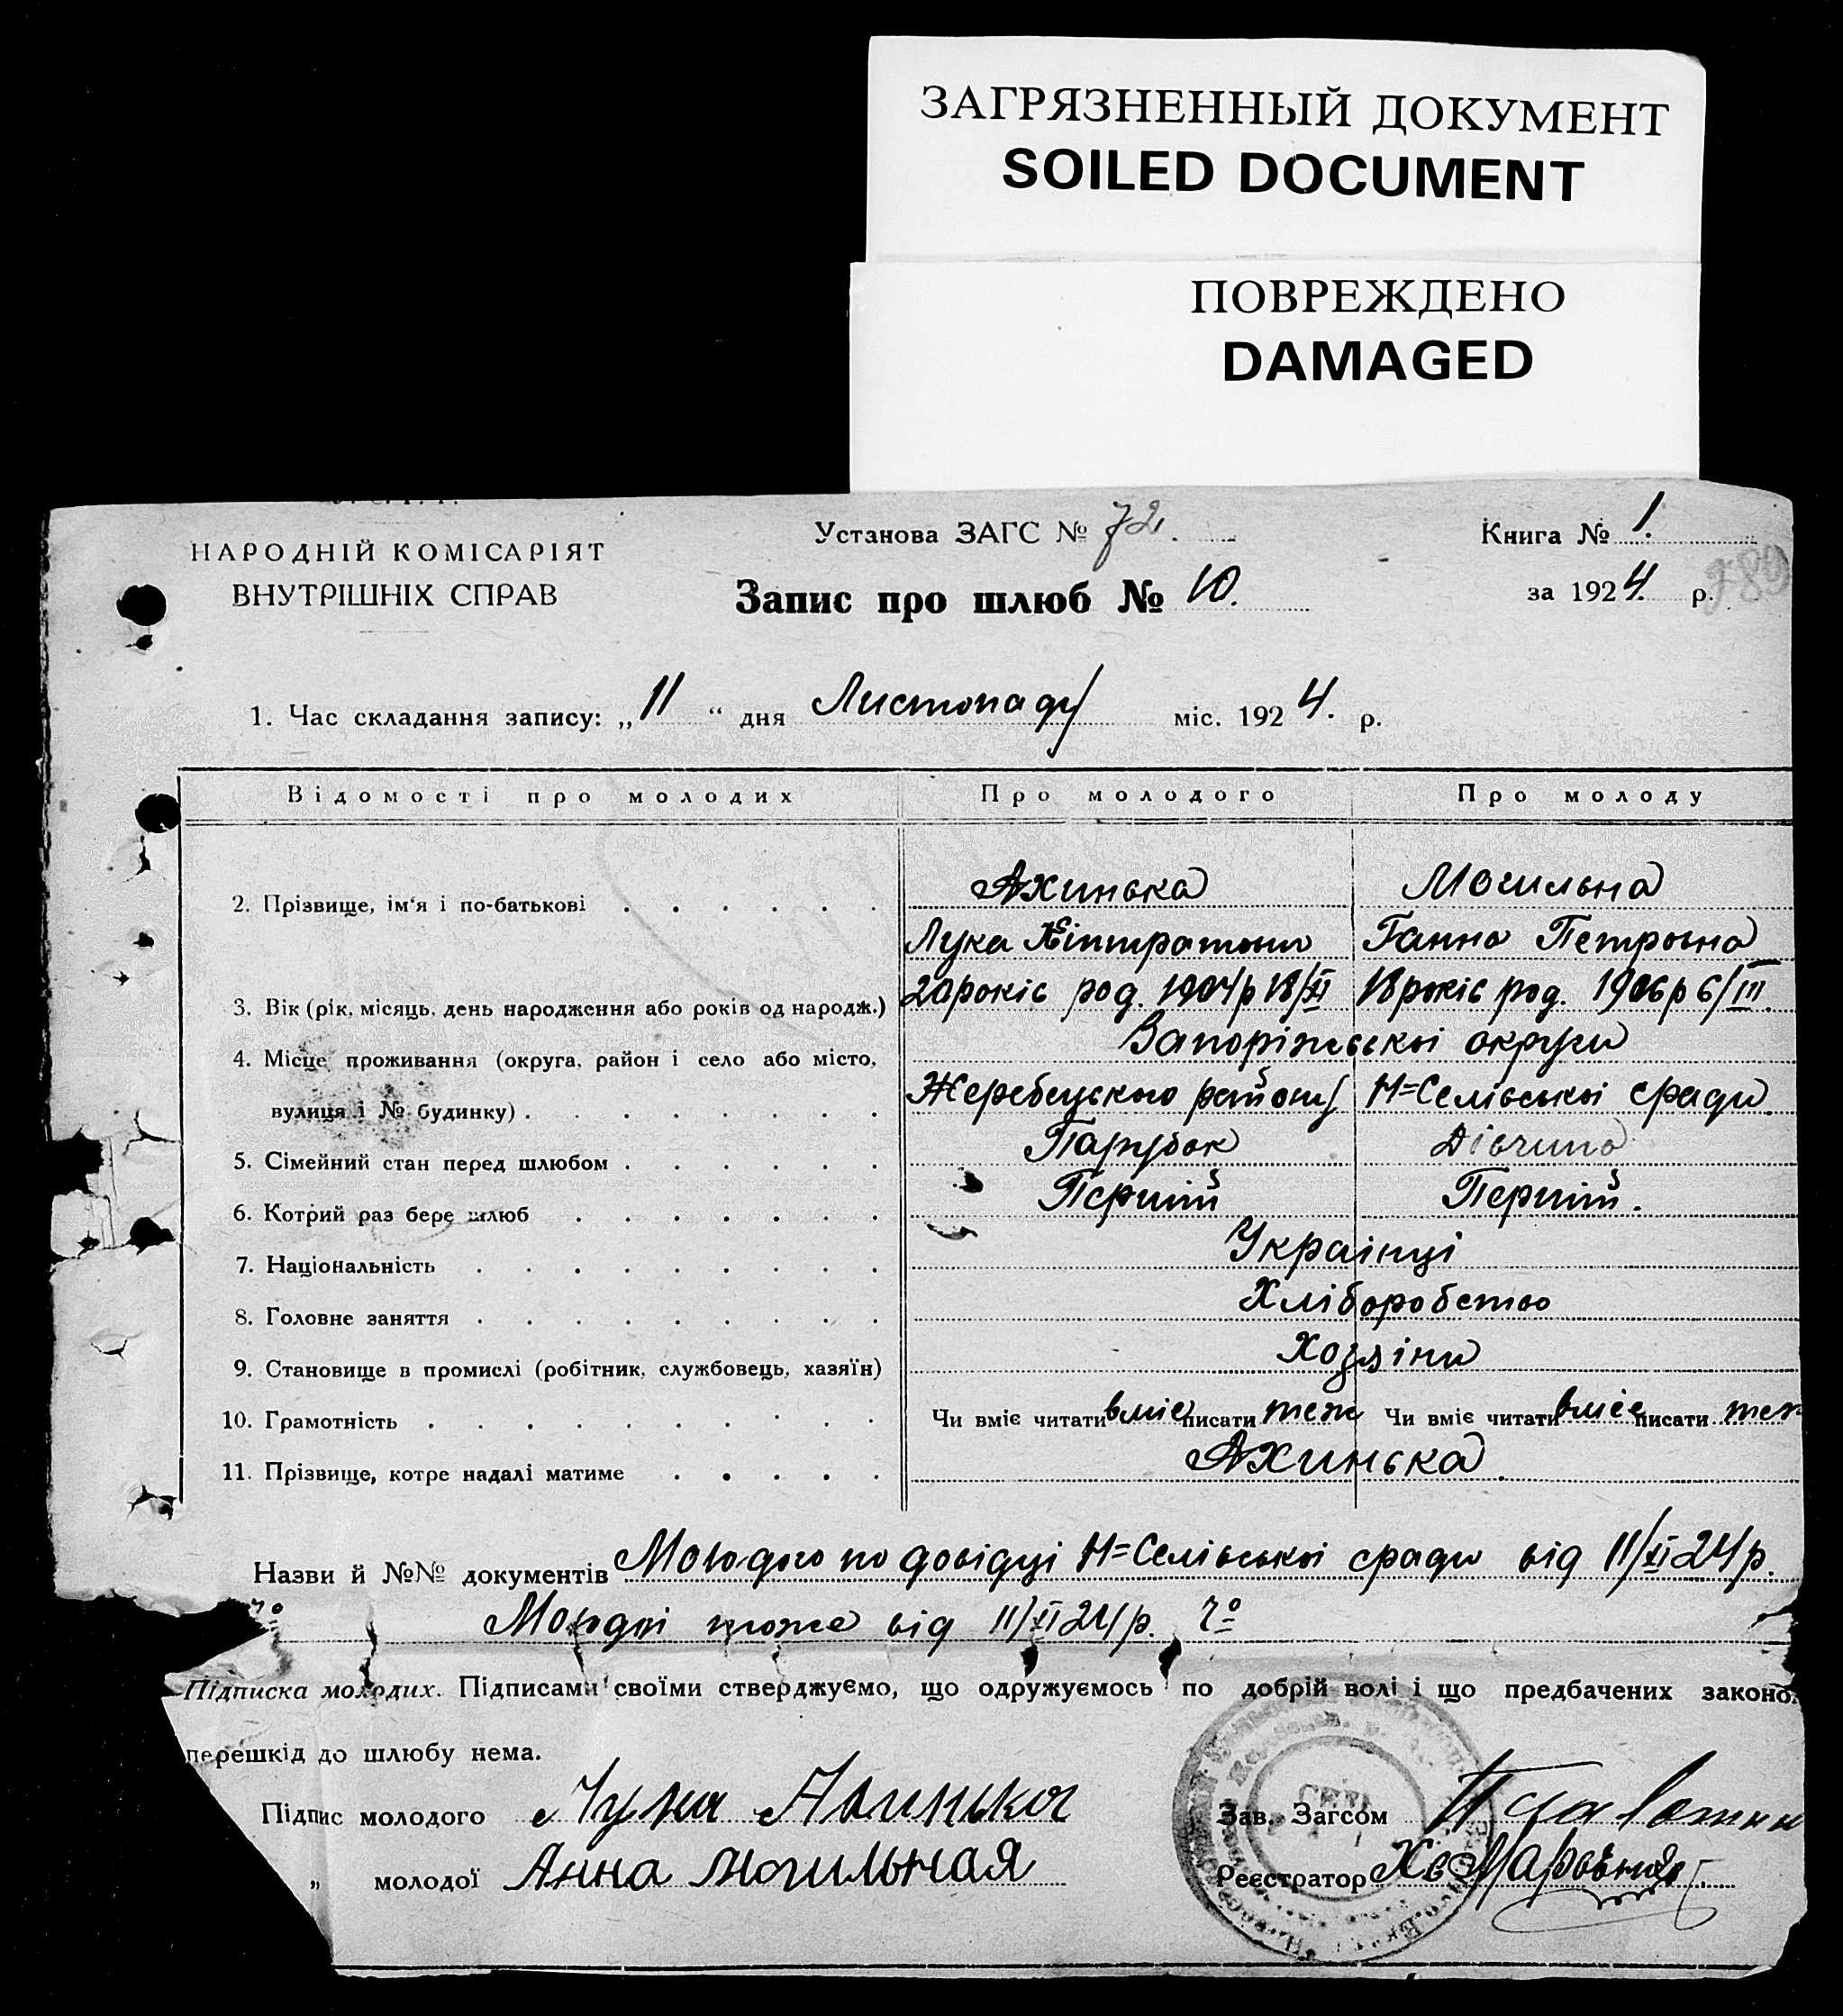 ЗАГРЯЗНЕННЫЙ ДОКУМЕНТ
SOILED DOCUMENT
ПОВРЕЖДЕНО
DAMAGED
НАРОДНІЙ КОМІСАРІЯТ
ВНУТРІШНІХ СПРАВ
Установа ЗАГС № 72.
Запис про шлюб № 10.
Книга № 1.
за 1924. р.
1. Час складання запису: „11“ дня Листопаду міс. 1924. р.
Відомості про молодих Про молодого Про молоду
2. Прізвище, ім'я і по-батькові Ахинька Могильна
Лука Ганна Петровна
3. Вік (рік, місяць, день народження або років од народж.) 20 років род. 1904р 18/XI 18 років род. 1906р 6/III.
4. Місце проживання (округа, район і село або місто, Запоріжської округи
вулиця і № будинку) Жеребецького району Н=Селівської сради
5. Сімейний стан перед шлюбом Парубок Дівчина
6. Котрий раз бере шлюб Перший Перший.
7. Національність Українці
8. Головне заняття Хліборобство
9. Становище в промислі (робітник, службовець, хазяїн) Хозяіни
10. Грамотність Чи вміє читати вміє писати теж Чи вміє читати вміє писати теж
11. Прізвище, котре надалі матиме Ахинька.
Назви й №№ документів Молодого по довідці Н=Селівської сради від 11/XI 24р.
Молодої тоже від 11/XI 24р.
Підписка молодих. Підписами своїми стверджуємо, що одружуємось по добрій волі і що предбачених законо
перешкід до шлюбу нема.
Підпис молодого Лука Ахинька
Зав. Загсом
„ молодої Анна могильная
Реєстратор